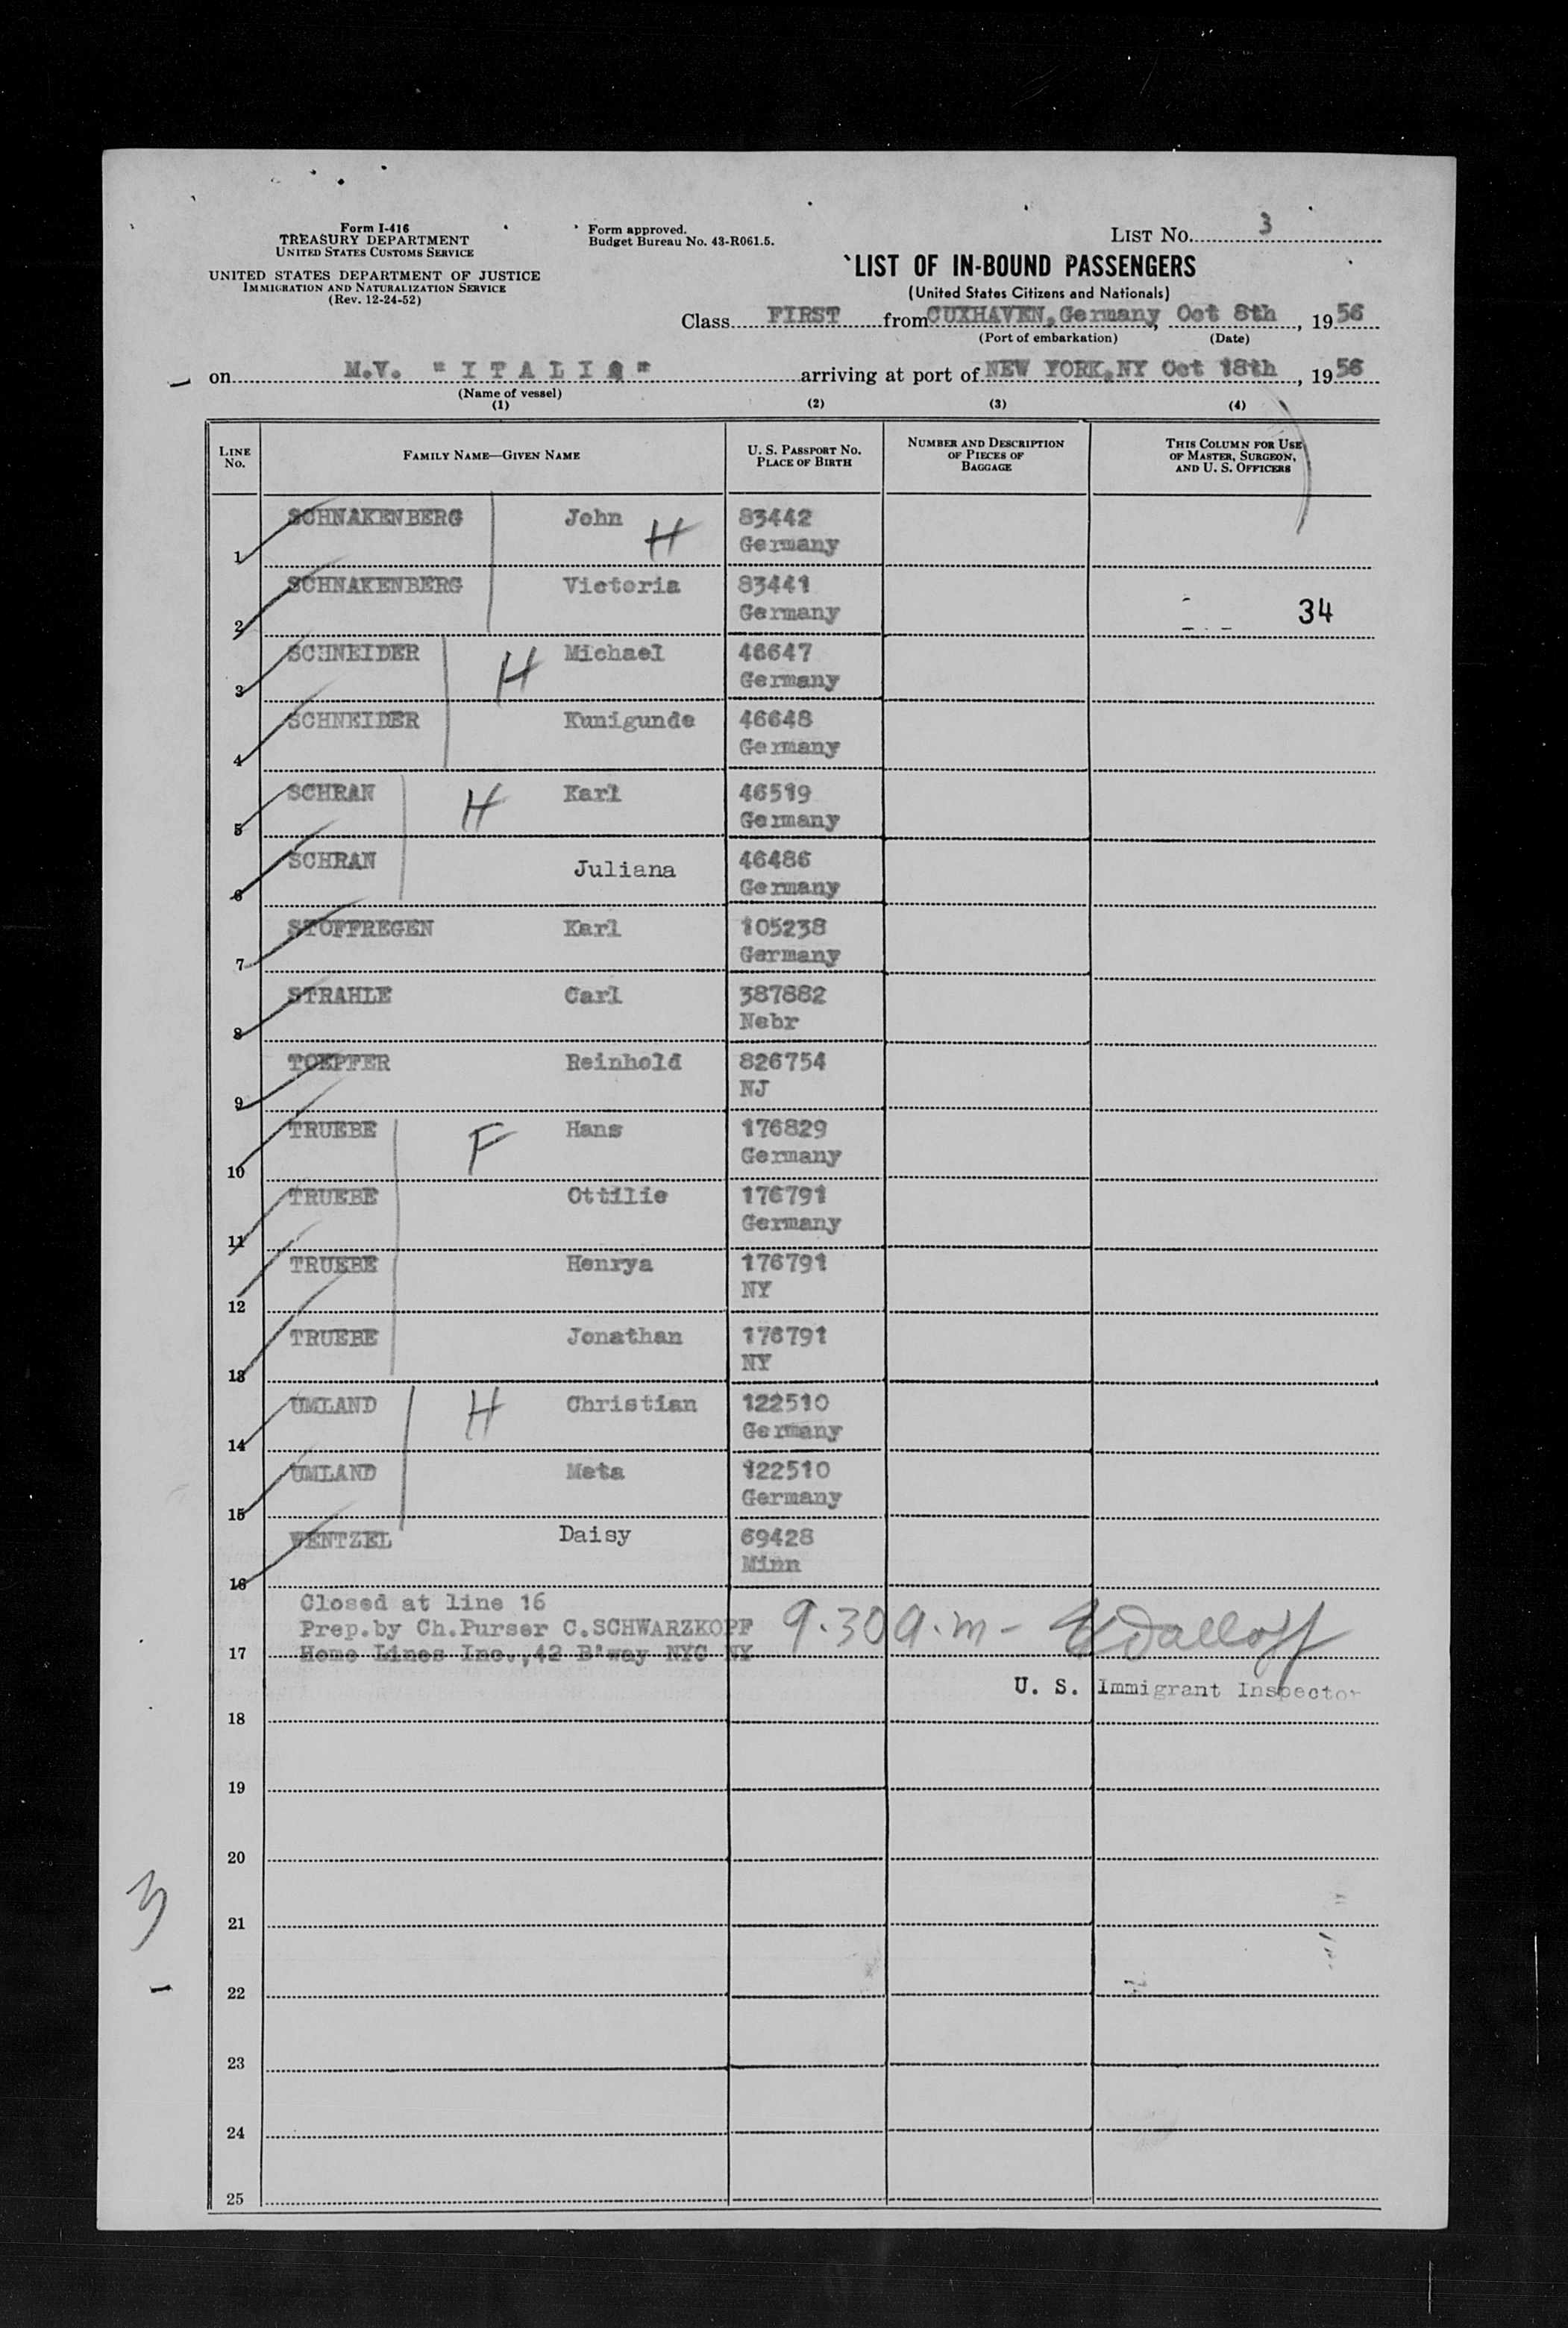 Form I-416
TREASURY DEPARTMENT
UNITED STATES CUSTOMS SERVICE
UNITED STATES DEPARTMENT OF JUSTICE
IMMIGRATION AND NATURALIZATION SERVICE
(Rev. 12-24-52)
Form approved.
Budget Bureau No. 43-R061.5.
LIST No. 3
LIST OF IN-BOUND PASSENGERS
(United States Citizens and Nationals)
Class FIRST from CUXHAVEN, Germany, Oct 8th, 1956
(Port of embarkation) (Date)
on M.V. "ITALIA" arriving at port of NEW YORK, NY Oct 18th, 1956
(Name of vessel)
(1) (2) (3) (4)
LINE No. FAMILY NAME—GIVEN NAME U. S. PASSPORT No. PLACE OF BIRTH NUMBER AND DESCRIPTION OF PIECES OF BAGGAGE THIS COLUMN FOR USE OF MASTER, SURGEON, AND U. S. OFFICERS
1 SCHNAKENBERG John H 83442
Germany
2 SCHNAKENBERG Victoria 83441
Germany 34
3 SCHNEIDER H Michael 46647
Germany
4 SCHNEIDER Kunigunde 46648
Germany
5 SCHRAN H Karl 46519
Germany
6 SCHRAN Juliana 46486
Germany
7 STOFFREGEN Karl 105238
Germany
8 STRAHLE Carl 387882
Nebr
9 TOEPFER Reinhold 826754
NJ
10 TRUEBE F Hans 176829
Germany
11 TRUEBE Ottilie 176791
Germany
12 TRUEBE Henrya 176791
NY
13 TRUEBE Jonathan 176791
NY
14 UMLAND H Christian 122510
Germany
15 UMLAND Meta 122510
Germany
16 WENTZEL Daisy 69428
Minn
Closed at line 16
Prep.by Ch.Purser C.SCHWARZKOPF 9.30 a.m -
17 Home Lines Inc.,42 B'way NYC NY
U. S. Immigrant Inspector
18
19
20
3
21
22
23
24
25